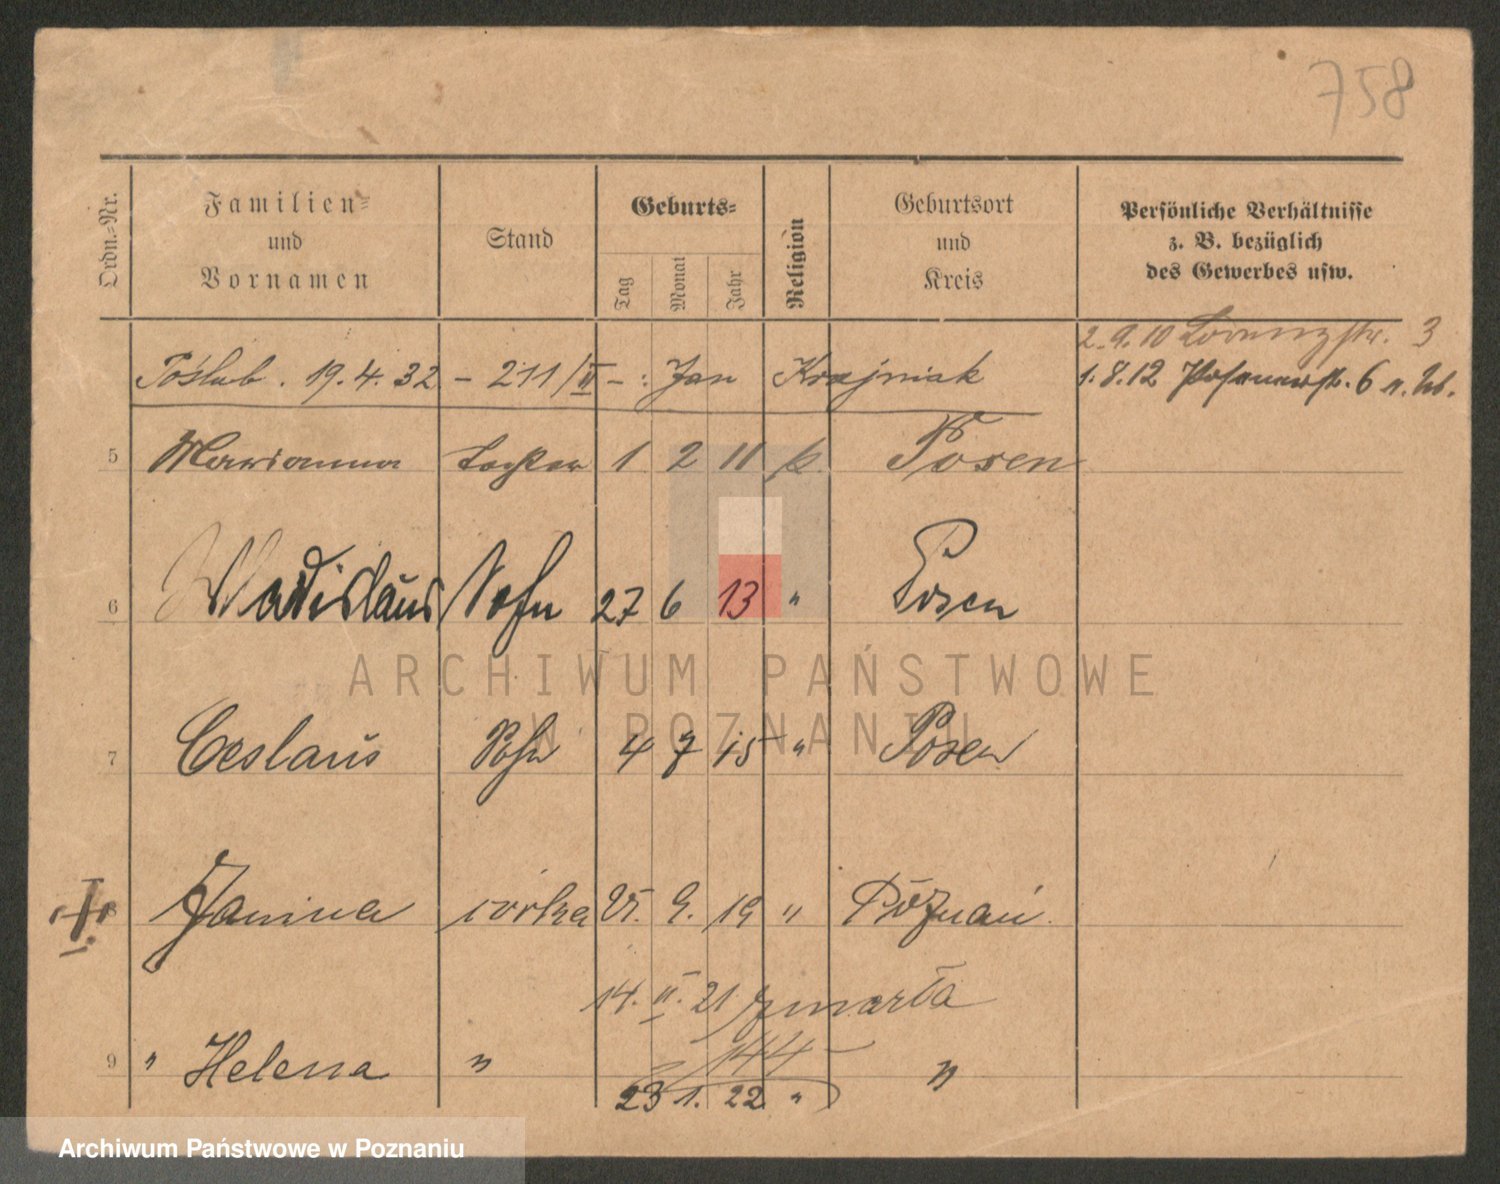 758
Ordn.-Nr.
Familien-
und
Vornamen
Stand
Geburts-
Tag
Monat
Jahr
Religion
Geburtsort
und
Kreis
Persönliche Verhältnisse
z. B. bezüglich
des Gewerbes usw.
2.9.10 3
1.8.12 Posenerstr. 6
Poślub. 19.4.32 – 211/II – : Jan Krajniak
5 Marianna Tochter 1 2 11 k. Posen
6 Wladislaus Sohn 27 6 13 " Posen
ARCHIWUM PAŃSTWOWE
W POZNANIU
7 Ceslaus Sohn 4 7 15 " Posen
8 Janina córka 9. 19 " Poznań.
14. II. 21 zmarła
144
9 " Helena " 23 1. 22 " "
Archiwum Państwowe w Poznaniu